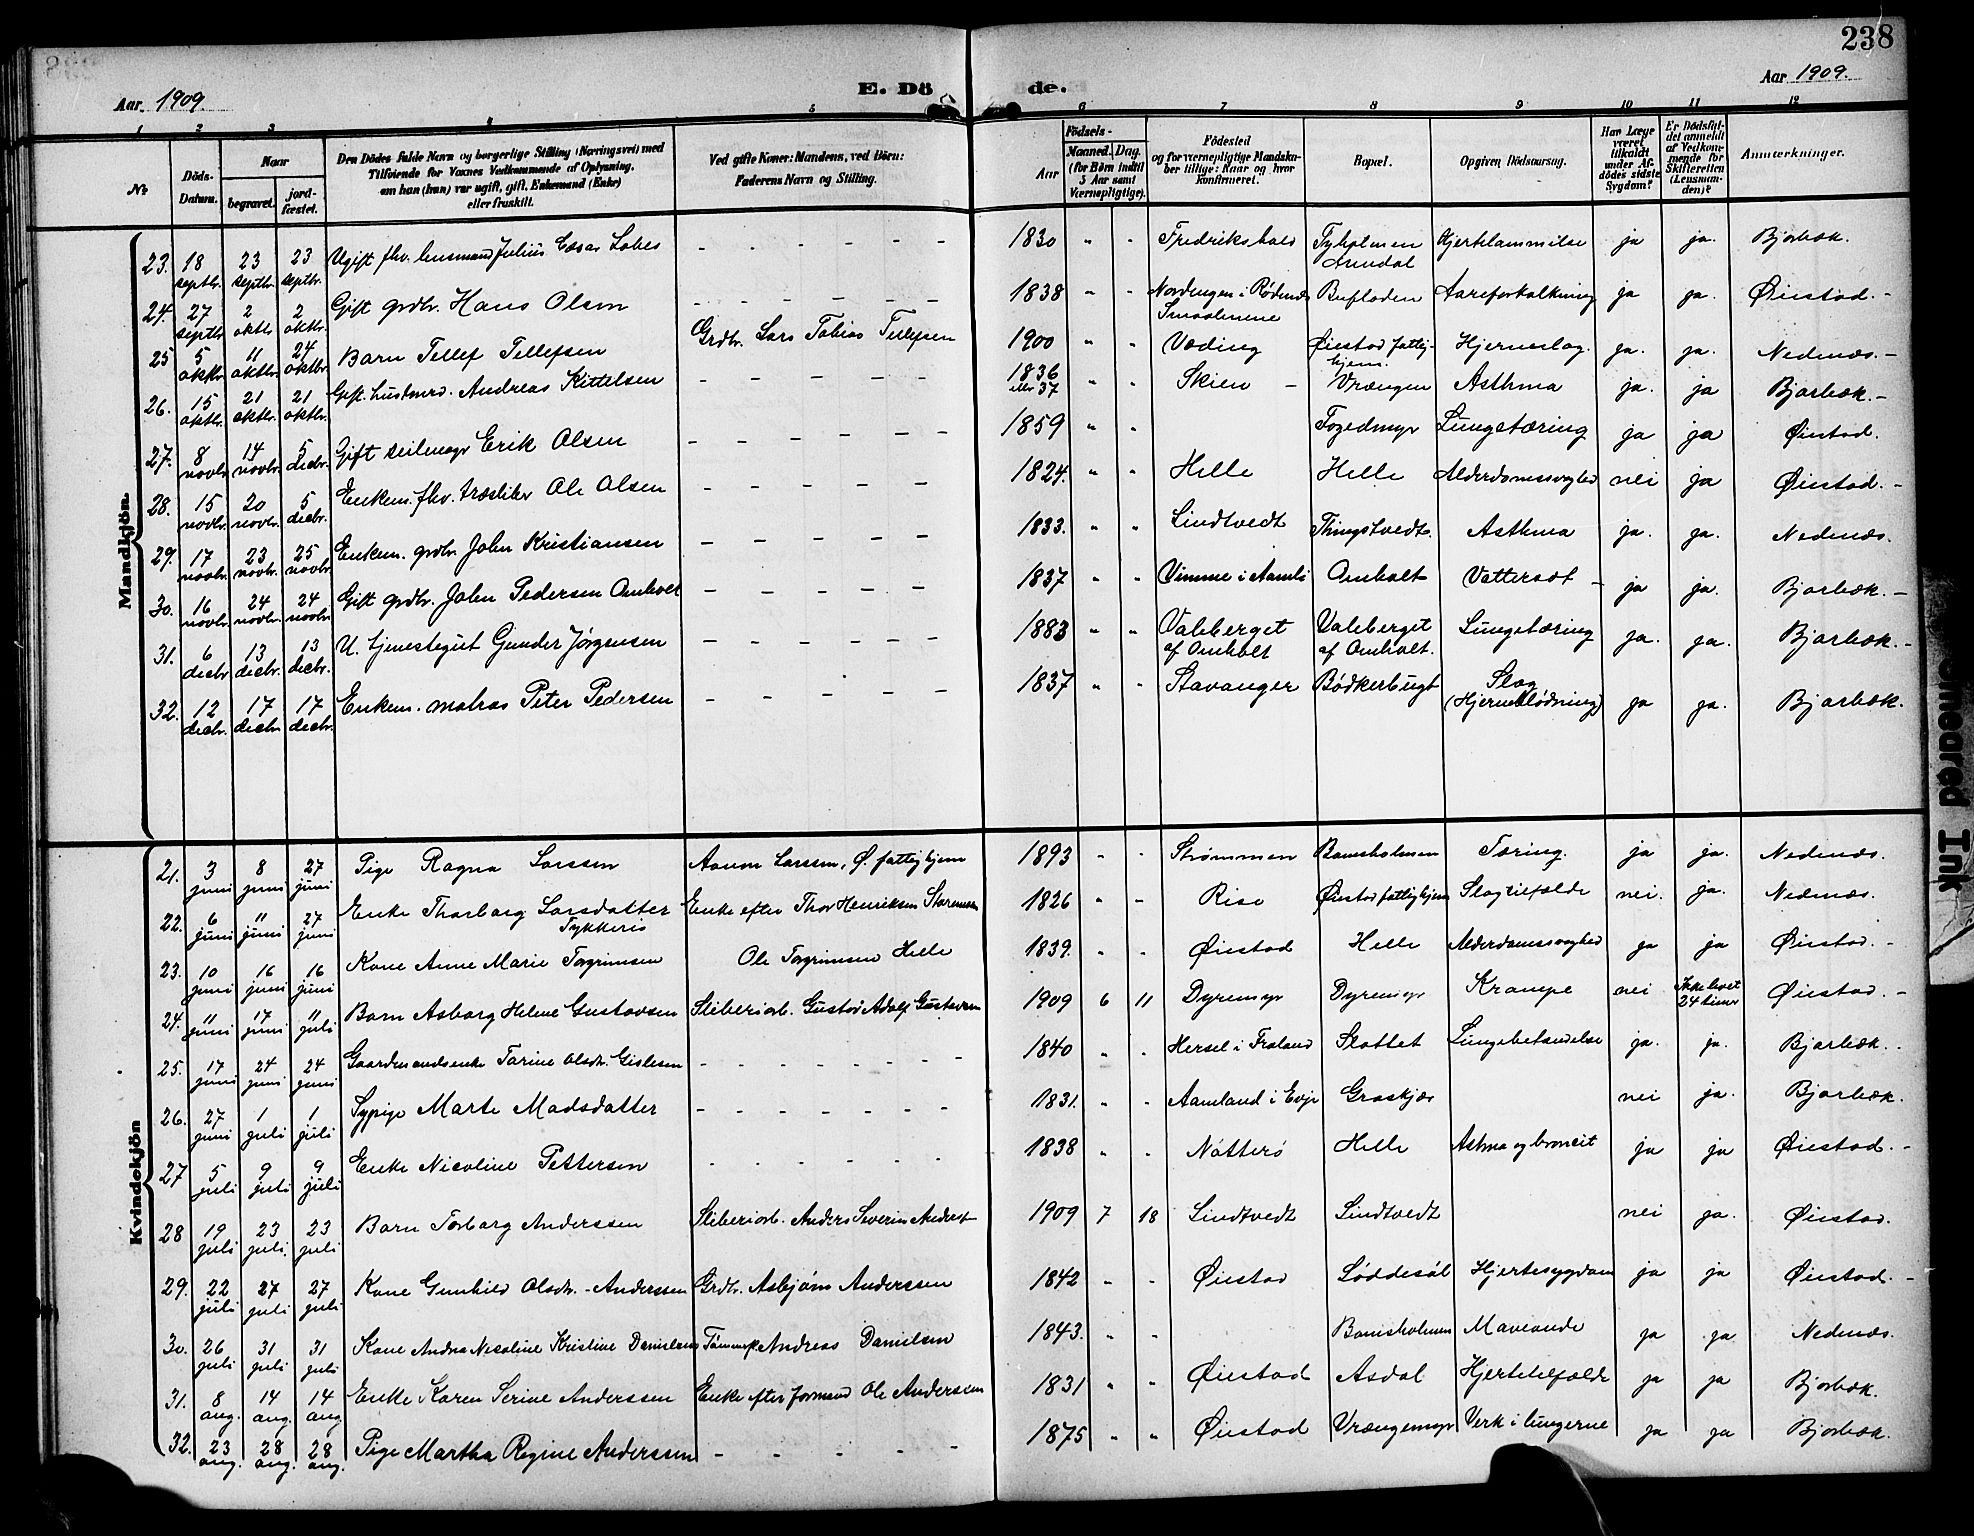 238
Aar 1909.
E. Dö
de.
Aar 1909.
1 2 3 4 5 6 7 8 9 10 11 12
No
Döds-Datum.
Naar
begravet.
jordfæstet.
Den Dödes fulde Navn og borgerlige Stilling (Næringsvei) med Tilføiende for Voxnes Vedkommende af Oplysning, om han (hun) var ugift, gift, Enkemand (Enke) eller fraskilt.
Ved gifte Koner: Mandens, ved Börn: Faderens Navn og Stilling.
Födsels-
Aar
Maaned. Dag.
(for Börn indtil 5 Aar samt Værnepligtige).
Födested og for værnepligtige Mandskaber tillige: Naar og hvor konfirmeret.
Bopæl.
Opgiven Dödsaarsag.
Har Læge været tilkaldt under Afdödes sidste Sygdom?
Er Dödsfaldet anmeldt af Vedkommende for Skifteretten (Lensmanden)?
Anmærkninger.
Mandkjön.
23. 18 septbr. 23 septbr. 23 septbr. Ugift fhv. lensmand Julius Cæsar Lobes - - - - - 1830 " - Fredrikshald Tyholmen Arendal Hjertelammelse ja ja. Bjorbæk.
24. 27 septbr 2 oktbr 2 oktbr. Gift grdbr. Hans Olsen - - - - - 1838 " - Nordengen i Rødenæs Smaalenene Bufladen Aareforkalkning ja ja. Øiestad. -
25 5 oktbr 11 oktbr. 24 oktbr. Barn Tellef Tellefsen Grdbr. Lars Tobias Tellefsen 1900 " " Væding Øiestad fattighjem. Hjerneslag. ja. ja. Nedenæs. -
26. 15 oktbr. 21 oktbr. 21 oktbr. Gift. husmd. Andreas Kittelsen - - - - - 1836 eller 37 " " Skien - Vrængen Asthma ja. ja Bjorbæk. -
27. 8 novbr 14 novbr. 5 decbr. Gift seilmagr Erik Olsen - - - - - 1859 " " Fogedmyr Lungetæring ja ja Øiestad.
28. 15 novbr. 20 novbr. 5 decbr. Enkem. fhv. træsliber Ole Olsen - - - - - 1824. " " Helle Helle Alderdomssvaghed nei ja Øiestad. -
29. 17 novbr. 23 novbr. 25 novbr. Enkem. grdbr. John Kristiansen - - - - - 1833. " " Lindtvedt Thingstvedt. Asthma ja. ja. Nedenæs.
30. 16 novbr. 24 novbr. 24 novbr. Gift grdbr. John Pedersen Omholt - - - - - 1837 " " Vimme i Aamli Omholt Vattersot - ja ja. Bjorbæk. -
31. 6 decbr 13 decbr. 13 decbr. U. tjenestegut Gunder Jørgensen - - - - - 1883 " " Valeberget af Omholt Valeberget af Omholt. Lungetæring ja. ja. Bjorbæk. -
32. 12 decbr. 17 decbr 17 decbr. Enkem. matros Peter Pedersen - - - - - 1837 " - Stavanger Bødkerbugt Slag (Hjerneblødning) ja ja. Bjorbæk.
Kvindekjön
21. 3 juni 8 juni 27 juni Pige Ragna Larssen Aanon Larssen, Ø. fattighjem 1893 - - Strømmen Bomsholmen Tæring. ja ja. Nedenæs.
22. 6 juni 11 juni 27 juni Enke Tharborg Larsdatter Tykkeris Enke efter Thor Henriksen 1826 " - Rise Øiestad fattighjem Slagtilfælde nei. ja. Nedenæs.
23. 10 juni 16 juni 16 juni Kone Anne Marie Torgrimsen Ole Torgrimsen Helle 1839. " - Øiestad Helle Alderdomssvaghed ja ja Øiestad. -
24. 11 juni 17 juni 11 juli Barn Asborg Helene Gustavsen Sliberiarb. Gustav Adolf Gustavsen 1909 6 11 Dyremyr Dyremyr Krampe nei Ikke levet 24 timer Øiestad. -
25. 17 juni 24 juni 24 juni Gaardmandsenke Tarine Olsdtr. Gislesen - - - - - - 1840 " - Hersel i Froland Slottet Lungebetændelse ja. ja. Bjorbæk. -
26. 27 juni 1 juli 1 juli Sypige Marte Madsdatter - - - - - - - 1831. " - Aamland i Evje Graskjær nei ja. Bjorbæk.
27 5 juli 9 juli 9 juli Enke Nicoline Pettersen - - - - - - 1838 " - Nøtterø Helle Astma og broncit ja ja Øiestad. -
28 19 juli 23 juli. 23 juli Barn Torborg Anderssen Sliberiarb. Anders Severin 1909 7 18 Lindtvedt Lindtvedt nei ja. Øiestad.
29. 22 juli 27 juli 27 juli Kone Gunhild Olsdtr. - Anderssen Grdbr. Asbjørn Anderssen 1842 " - Øiestad Løddesøl Hjertesygdom ja ja Øiestad. -
30. 26 juli 31 juli 31 juli Kone Andrea Nicoline Kristine Danielsen Andreas Danielsen 1843. " - Bomsholmen Maveonde ja ja Nedenæs.
31. 8 aug. 14 aug. 14 aug Enke Karen Serine Anderssen Enke efter formand Ole Anderssen 1831 " - Øiestad Asdal Hjertetilfælde ja ja Bjorbæk.
32. 23 aug. 28 aug. 28 aug. Pige Martha Regine Anderssen - - - - - 1875 " " Øiestad Vrængemyr Verk i lungerne ja ja Bjorbæk.
Smeared Ink